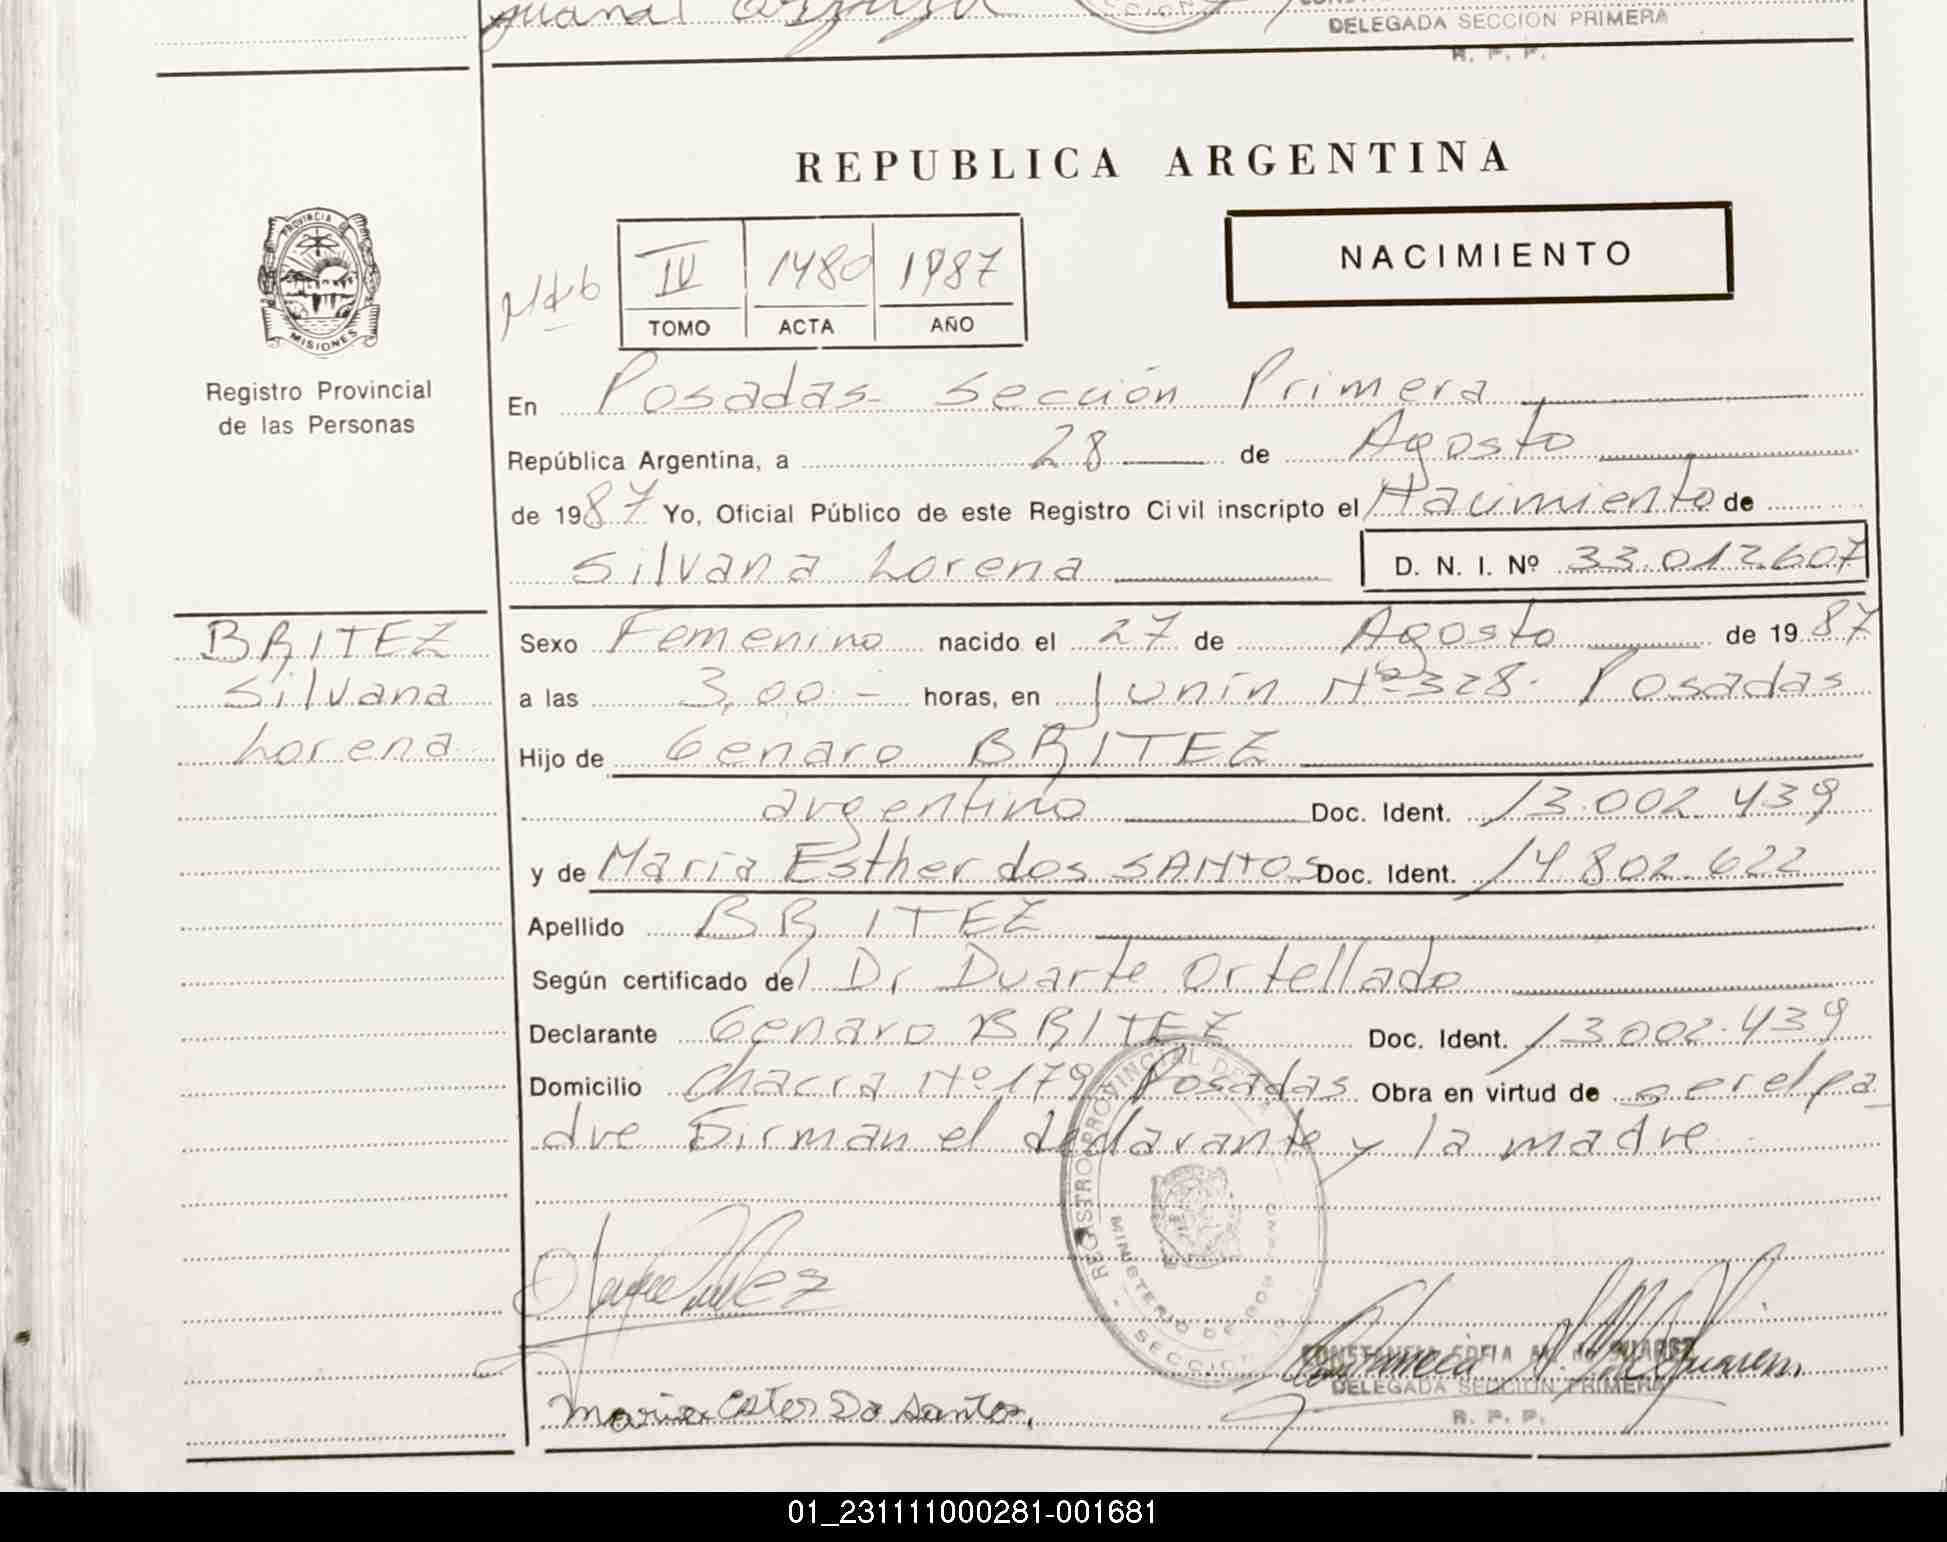 DELEGADA SECCION PRIMERA
R. P. P.
REPUBLICA ARGENTINA
NACIMIENTO
IV 1480 1987
TOMO ACTA AÑO
PROVINCIA
MISIONES
Registro Provincial
de las Personas
En Posadas- Sección Primera
República Argentina, a 28 de Agosto
de 1987 Yo, Oficial Público de este Registro Civil inscripto el Nacimiento de
Silvana Lorena D. N. I. Nº 33.012.607
BRITEZ
Silvana
Lorena
Sexo Femenino nacido el 27 de Agosto de 1987
a las 3,00.- horas, en Junín Nº 328- Posadas
Hijo de Genaro BRITEZ
argentino Doc. Ident. 13.002.439
y de María Esther dos SANTOS Doc. Ident. 14.802.622
Apellido BRITEZ
Según certificado del Dr Duarte Ortellado
Declarante Genaro BRITEZ Doc. Ident. 13.002.439
Domicilio Chacra Nº 179 Posadas Obra en virtud de ser el pa
dre Firman el declarante y la madre
REGISTRO PROVINCIAL DE
MINISTERIO DE GOB
SECCION
DELEGADA SECCION PRIMERA
R. P. P.
Maria Ester Do Santos.
01_231111000281-001681